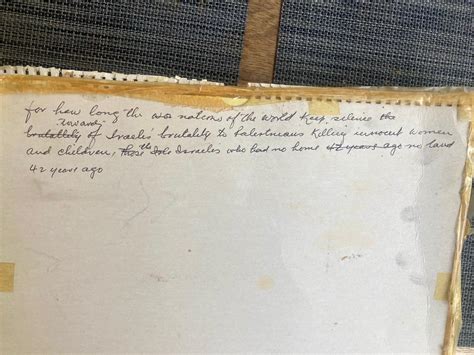 for how long the nations of the world keep silence the
towards
brutality of Israeli's brutality to Palestinians Killing innocent women
and children, those the Israelis who had no home 42 years ago no land
42 years ago